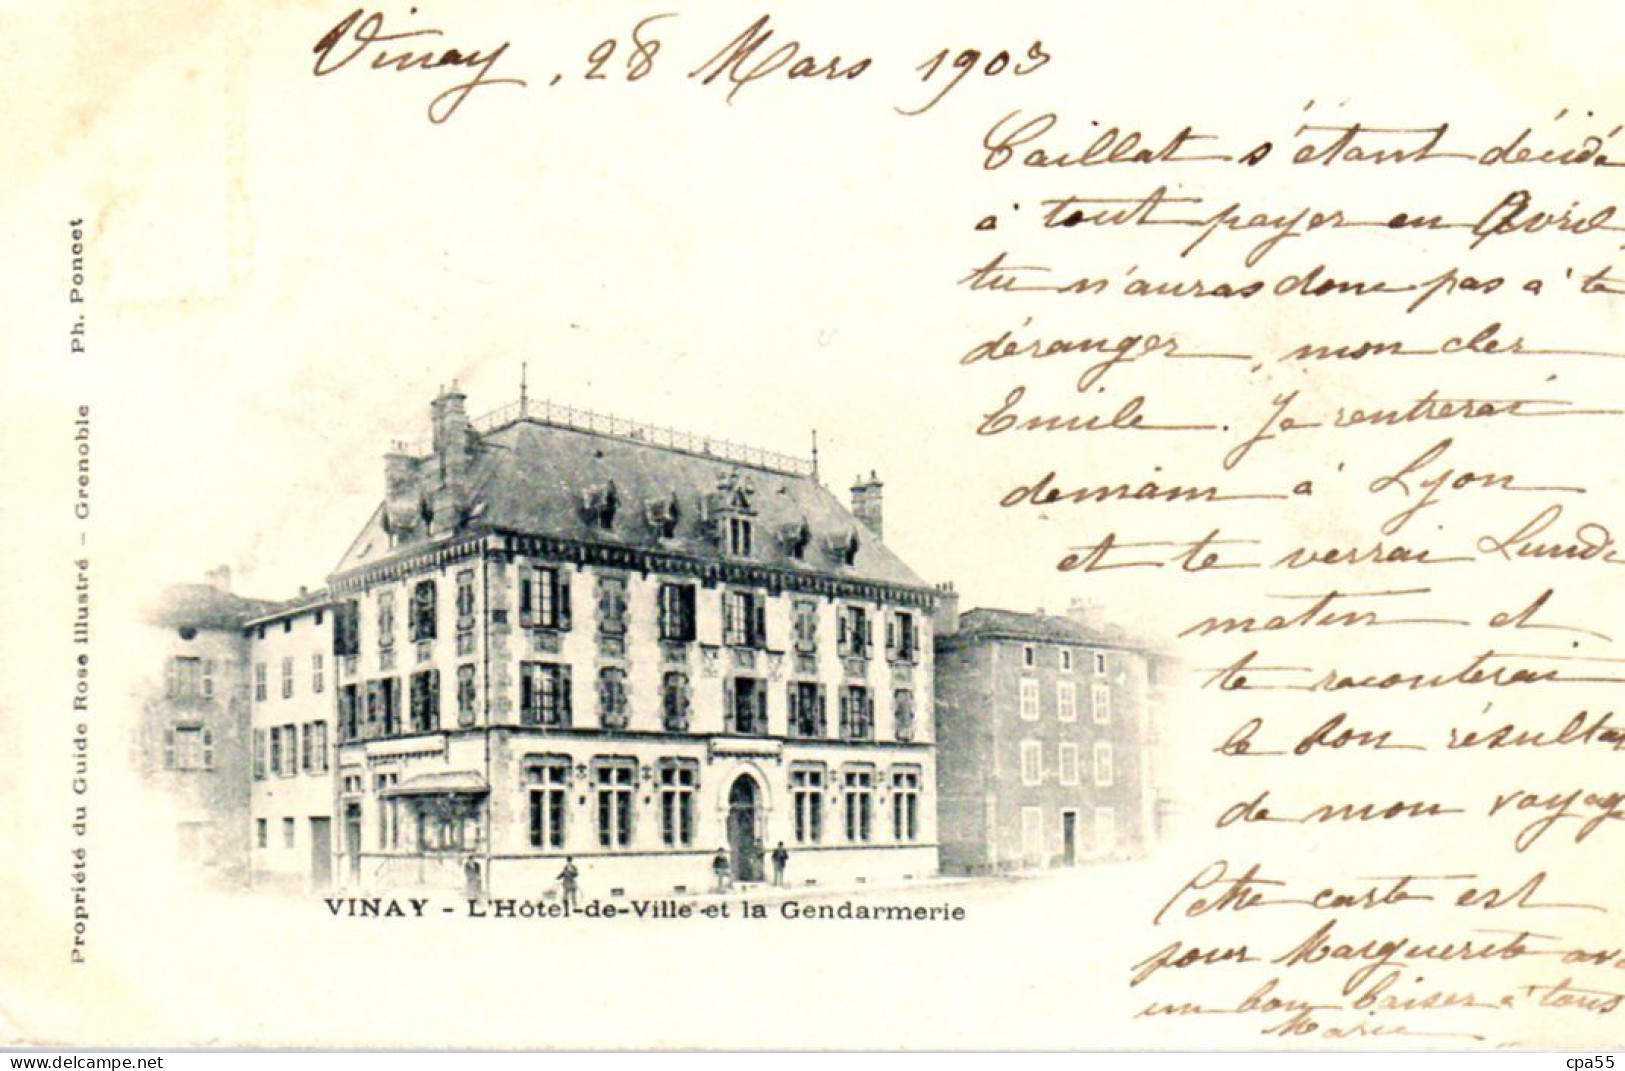 Vinay, 28 Mars 1903
Caillat s'étant décidé
à tout payer en Avril
tu n'auras donc pas à te
déranger, mon cher
Emile. Je rentrerai
demain à Lyon
et te verrai Lundi
matin et
te raconterai
le bon résultat
de mon voyage
Cette carte est
pour Marguerite avec
un bon baiser à tous
Marie
Propriété du Guide Rose illustré - Grenoble Ph. Poncet
VINAY - L'Hôtel-de-Ville et la Gendarmerie
delcampe.net
cpa55